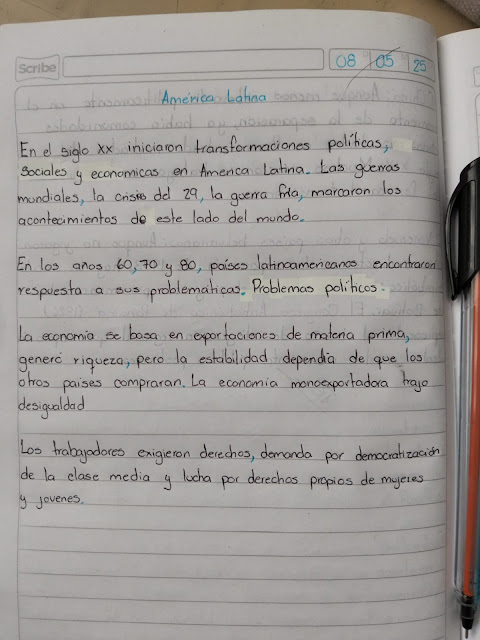 Scribe
08 05 25
América Latina
En el siglo XX iniciaron transformaciones políticas,
sociales y economicas en America Latina. Las guerras
mundiales, la crisis del 29, la guerra fría, marcaron los
acontecimientos de este lado del mundo.
En los años 60, 70 y 80, países latinoamericanos encontraron
respuesta a sus problematicas. Problemas políticos.
La economía se basa en exportaciones de materia prima,
generó riqueza, pero la estabilidad dependía de que los
otros paises compraran. La economía monoexportadora trajo
desigualdad
Los trabajadores exigieron derechos, demanda por democratización
de la clase media y lucha por derechos propios de mujeres
y jovenes.